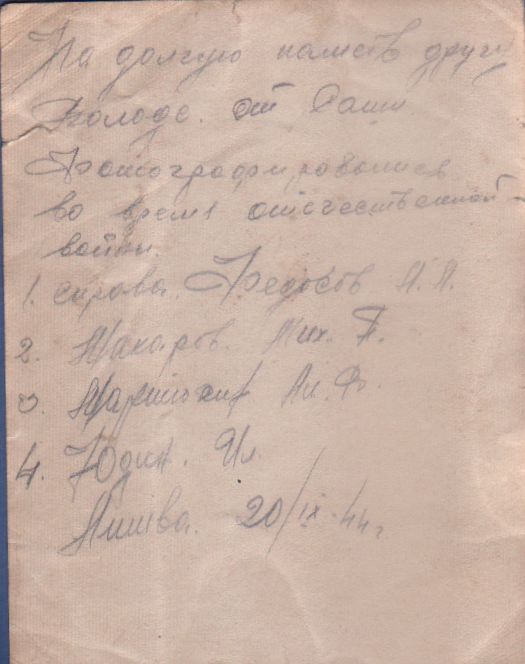 На долгую память другу
Володе. от Саши
Фотографировались
во время отечественной
войны.
1. справа. Федосов А. А.
2. Макаров. Мих. П.
3. Ал. Ф.
4. Юдин. Ил.
Литва. 20/IX-44 г.